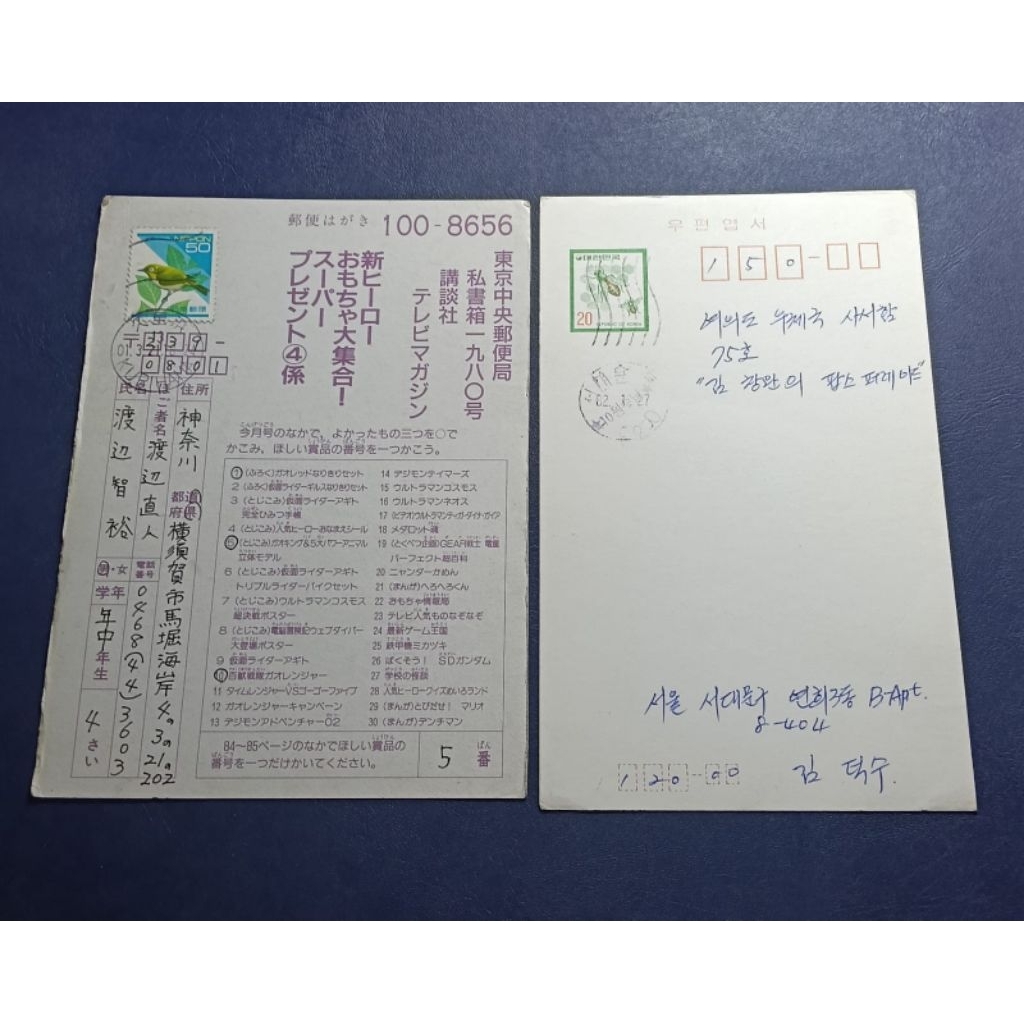 郵便はがき 100-8656
NIPPON
50
東京中央郵便局
私書箱一九八〇号
講談社
テレビマガジン
新ヒーロー
おもちゃ大集合！
スーパー
プレゼント④係
〒 239-0801
住所 神奈川 都道府県 横須賀市馬堀海岸4の3の21の202
ほご者名 渡辺直人
電話番号 0468(44)3603
氏名 渡辺智裕
男・女
学年 年中 年生 4さい
今月号のなかで、よかったもの三つを○で
かこみ、ほしい賞品の番号を一つかこう。
1 (ふろく)ガオレッドなりきりセット
2 (ふろく)仮面ライダーギルスなりきりセット
3 (とじこみ)仮面ライダーアギト
完全ひみつ手帳
4 (とじこみ)人気ヒーローおなまえシール
5 (とじこみ)ガオキング&5大パワーアニマル
立体モデル
6 (とじこみ)仮面ライダーアギト
トリプルライダーバイクセット
7 (とじこみ)ウルトラマンコスモス
超決戦ポスター
8 (とじこみ)電脳冒険記ウェブダイバー
大登場ポスター
9 仮面ライダーアギト
10 百獣戦隊ガオレンジャー
11 タイムレンジャーVSゴーゴーファイブ
12 ガオレンジャーキャンペーン
13 デジモンアドベンチャー02
14 デジモンテイマーズ
15 ウルトラマンコスモス
16 ウルトラマンネオス
17 (ビデオ)ウルトラマンティガ・ダイナ・ガイア
18 メダロット魂
19 (とくべつ企画)GEAR戦士 電童
パーフェクト超百科
20 ニャンダーかめん
21 (まんが)へろへろくん
22 おもちゃ情報局
23 テレビ人気ものなぞなぞ
24 最新ゲーム王国
25 鉄甲機ミカヅキ
26 ばくそう! SDガンダム
27 学校の怪談
28 人気ヒーロークイズめいろランド
29 (まんが)とびだせ! マリオ
30 (まんが)デンチマン
84〜85ページのなかでほしい賞品の
番号を一つだけかいてください。
5 番
우편엽서
대한민국
20
REPUBLIC OF KOREA
150-
여의도 우체국 사서함
75호
"김 광한의 팝스 퍼레이드"
서울 서대문구 연희3동 B-Apt.
8-404
120-00 김 덕수.